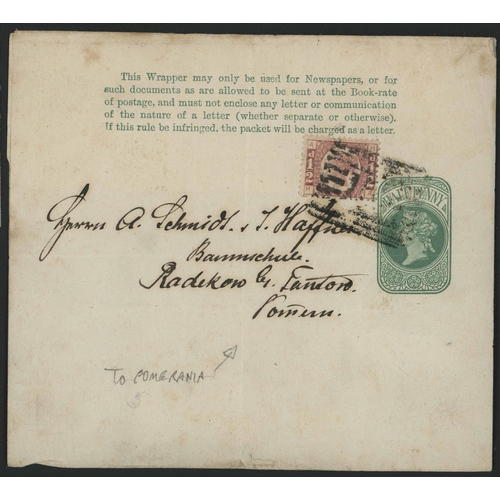 This Wrapper may only be used for Newspapers, or for
such documents as are allowed to be sent at the Book-rate
of postage, and must not enclose any letter or communication
of the nature of a letter (whether separate or otherwise).
If this rule be infringed, the packet will be charged as a letter.
HALFPENNY
Herrn A. Schmidt
Baumschule.
Radekow b/ Tantow.
Pom̅ern.
TO POMERANIA